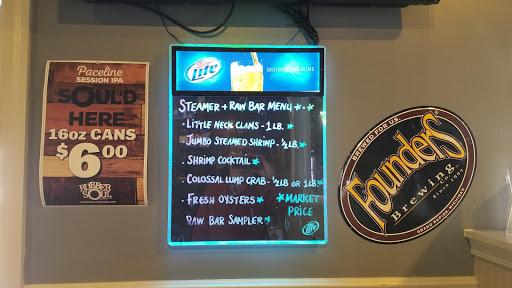 Paceline
SESSION IPA
SOUL'D
HERE
16oz CANS
$6.00
RUBBER
SOUL
Miller
Lite
STEAMER + RAW BAR MENU
• LITTLE NECK CLAMS - 1 LB.
• JUMBO STEAMED SHRIMP - ½ LB.
• SHRIMP COCKTAIL
• COLOSSAL LUMP CRAB - ½ LB OR 1 LB
• FRESH OYSTERS
*MARKET
PRICE
RAW BAR SAMPLER
Lite
BREWED FOR US
FOUNDERS
Brewing
Since 1997
GRAND RAPIDS MICHIGAN